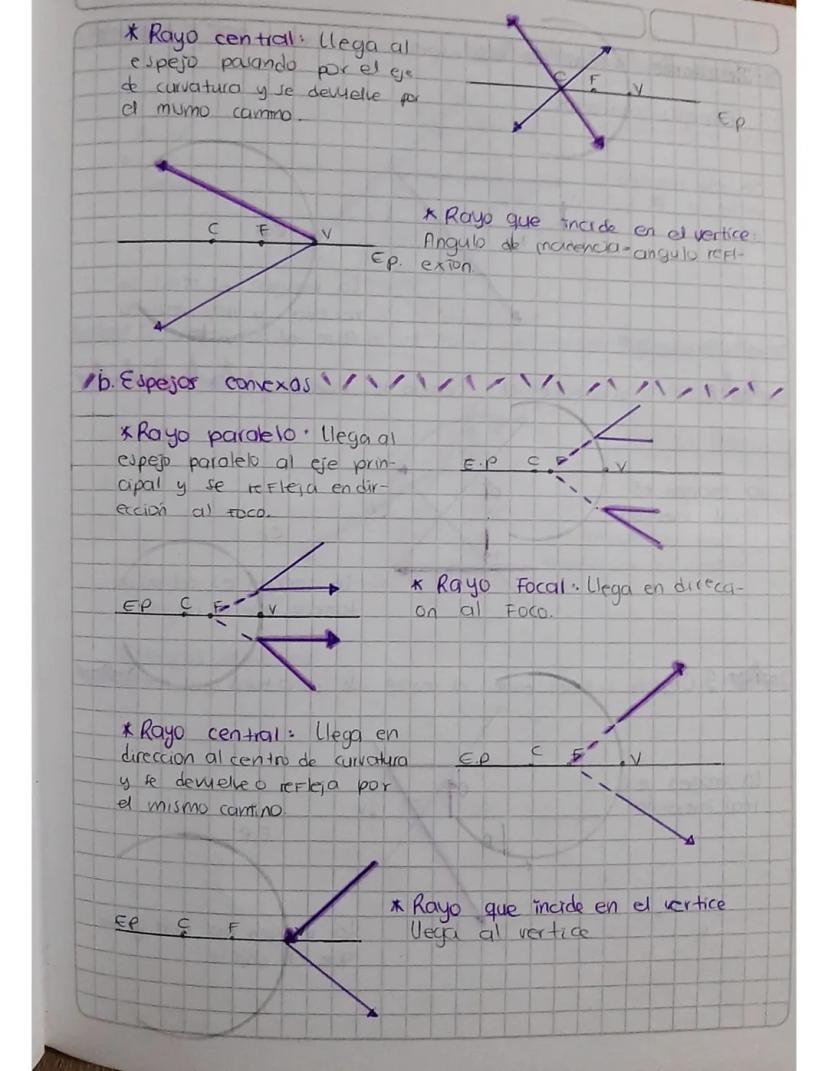 * Rayo central: Llega al
espejo pasando por el eje
de curvatura y se devuelve por
el mismo camino.
C F V
E p
C F V
E p.
* Rayo que incide en el vertice:
Angulo de incidencia = angulo refl-
exion.
b. Espejos convexos
* Rayo paralelo: Llega al
espejo paralelo al eje prin-
cipal y se refleja en dir-
ección al foco.
E.P C F V
E P C F V
* Rayo Focal: Llega en direcci-
on al Foco.
* Rayo central: Llega en
direccion al centro de curvatura
y se devuelve o refleja por
el mismo camino.
E.P C F V
E P C F
* Rayo que incide en el vertice
llega al vertice